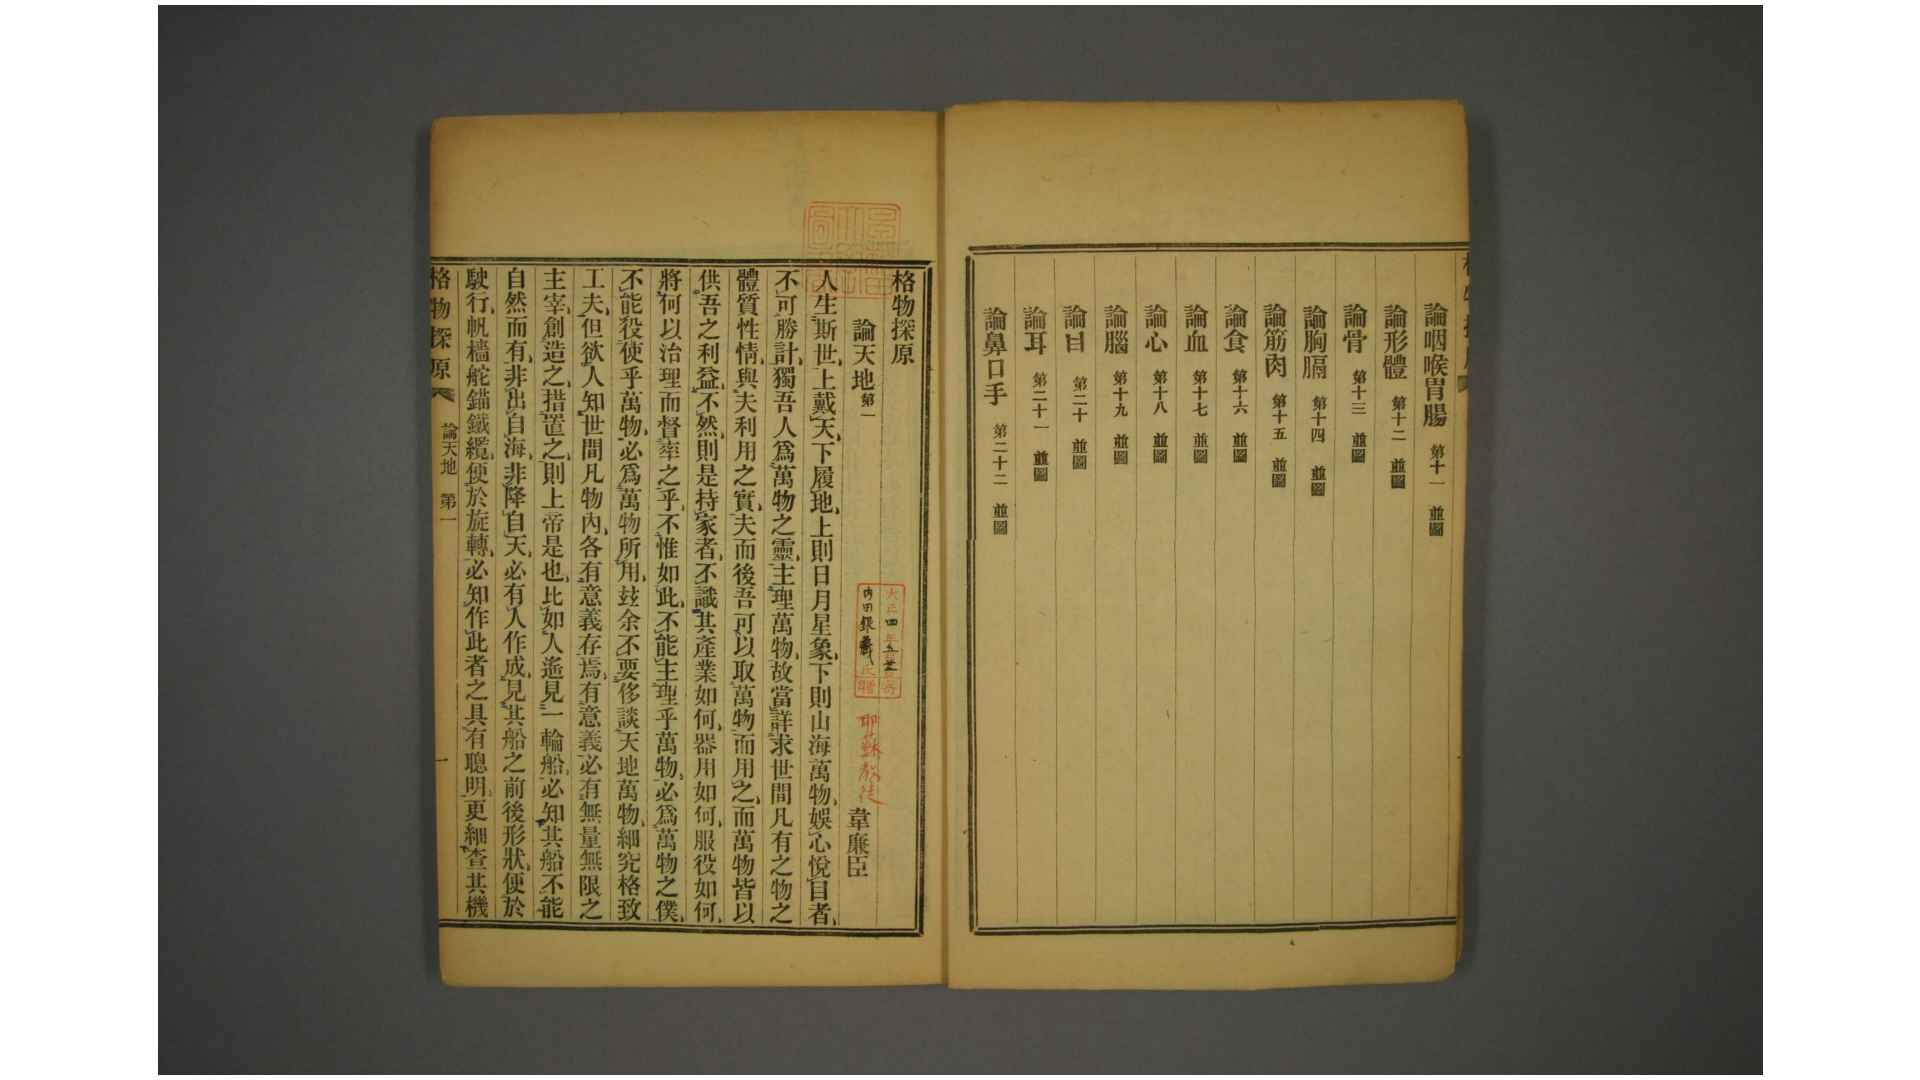 論咽喉胃腸 第十一 並圖
論形體 第十二 並圖
論骨 第十三 並圖
論胸膈 第十四 並圖
論筋肉 第十五 並圖
論食 第十六 並圖
論血 第十七 並圖
論心 第十八 並圖
論腦 第十九 並圖
論目 第二十 並圖
論耳 第二十一 並圖
論鼻口手 第二十二 並圖
格物探原
論天地 第一 韋廉臣
大正四年
內田銀藏氏寄贈
耶蘇教徒
人生斯世、上戴天、下履地、上則日月星象、下則山海萬物、娛心悅目者、
不可勝計、獨吾人爲萬物之靈、主理萬物、故當詳求世間凡有之物之
體質性情、與夫利用之實、夫而後吾可以取萬物而用之、而萬物皆以
供吾之利益、不然、則是持家者、不識其產業如何、器用如何、服役如何、
將何以治理而督率之乎、不惟如此、不能主理乎萬物、必爲萬物之僕、
不能役使乎萬物、必爲萬物所用、玆余不要侈談天地萬物、細究格致
工夫、但欲人知世間凡物內、各有意義存焉、有意義必有無量無限之
主宰、創造之、措置之、則上帝是也、比如人遙見一輪船、必知其船不能
自然而有、非出自海、非降自天、必有人作成、見其船之前後形狀、便於
駛行、帆檣舵錨鐵纜、便於旋轉、必知作此者之具有聰明、更細查其機
格物探原 論天地 第一 一